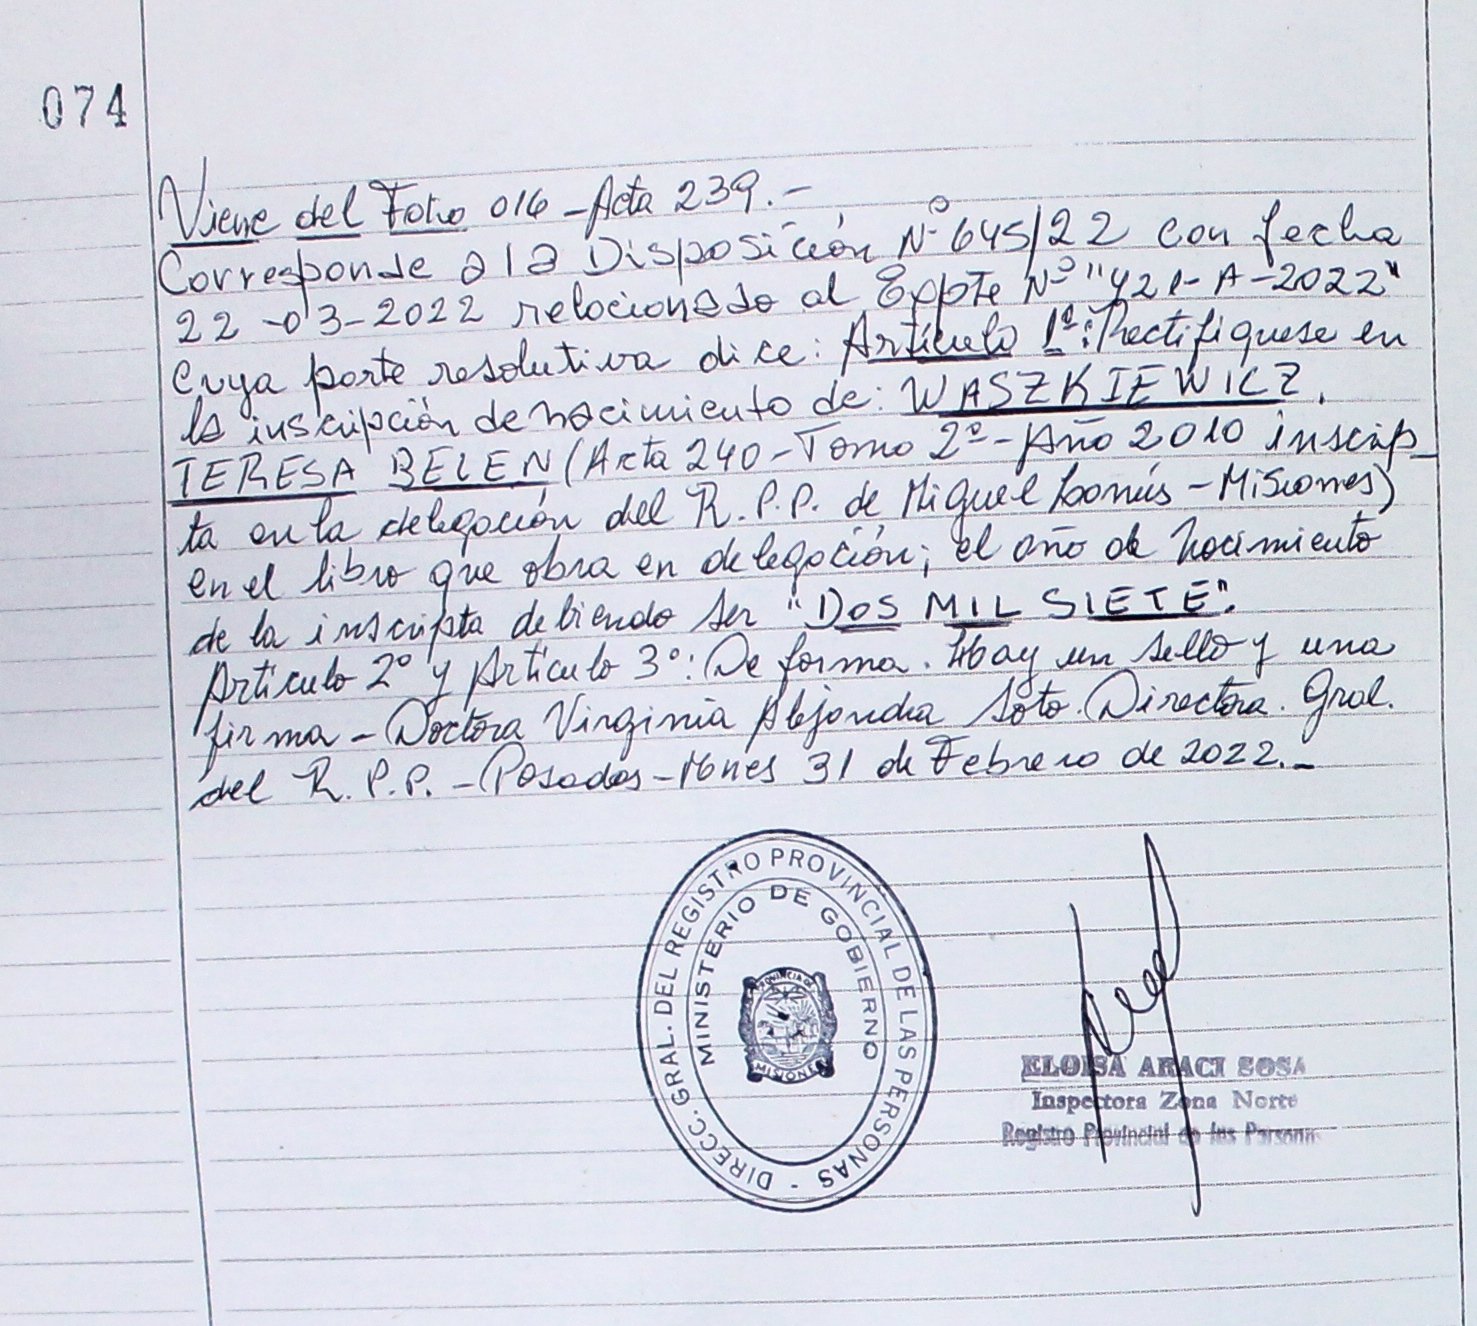 074
Viene del Folio 016 - Acta 239.-
Corresponde a la Disposición Nº 645/22 con fecha
22-03-2022 relacionado al Expte Nº "421-A-2022"
cuya parte resolutiva dice: Artículo 1º: Rectifiquese en
la inscripción de nacimiento de: WASZKIEWICZ,
TERESA BELEN (Acta 240 - Tomo 2º - Año 2010 inscrip_
ta en la delegación del R.P.P. de Miguel Lanús - Misiones)
en el libro que obra en delegación; el año de nacimiento
de la inscripta debiendo ser "DOS MIL SIETE".
Artículo 2º y Artículo 3º: De forma. Hay un sello y una
firma - Doctora Virginia Alejandra Soto. Directora. Gral.
del R.P.P. - Posadas - Mnes 31 de Febrero de 2022.-
DIRECC. GRAL. DEL REGISTRO PROVINCIAL DE LAS PERSONAS -
MINISTERIO DE GOBIERNO
PROVINCIA DE
MISIONES
ELOISA ARACI SOSA
Inspectora Zona Norte
Registro Provincial de las Personas